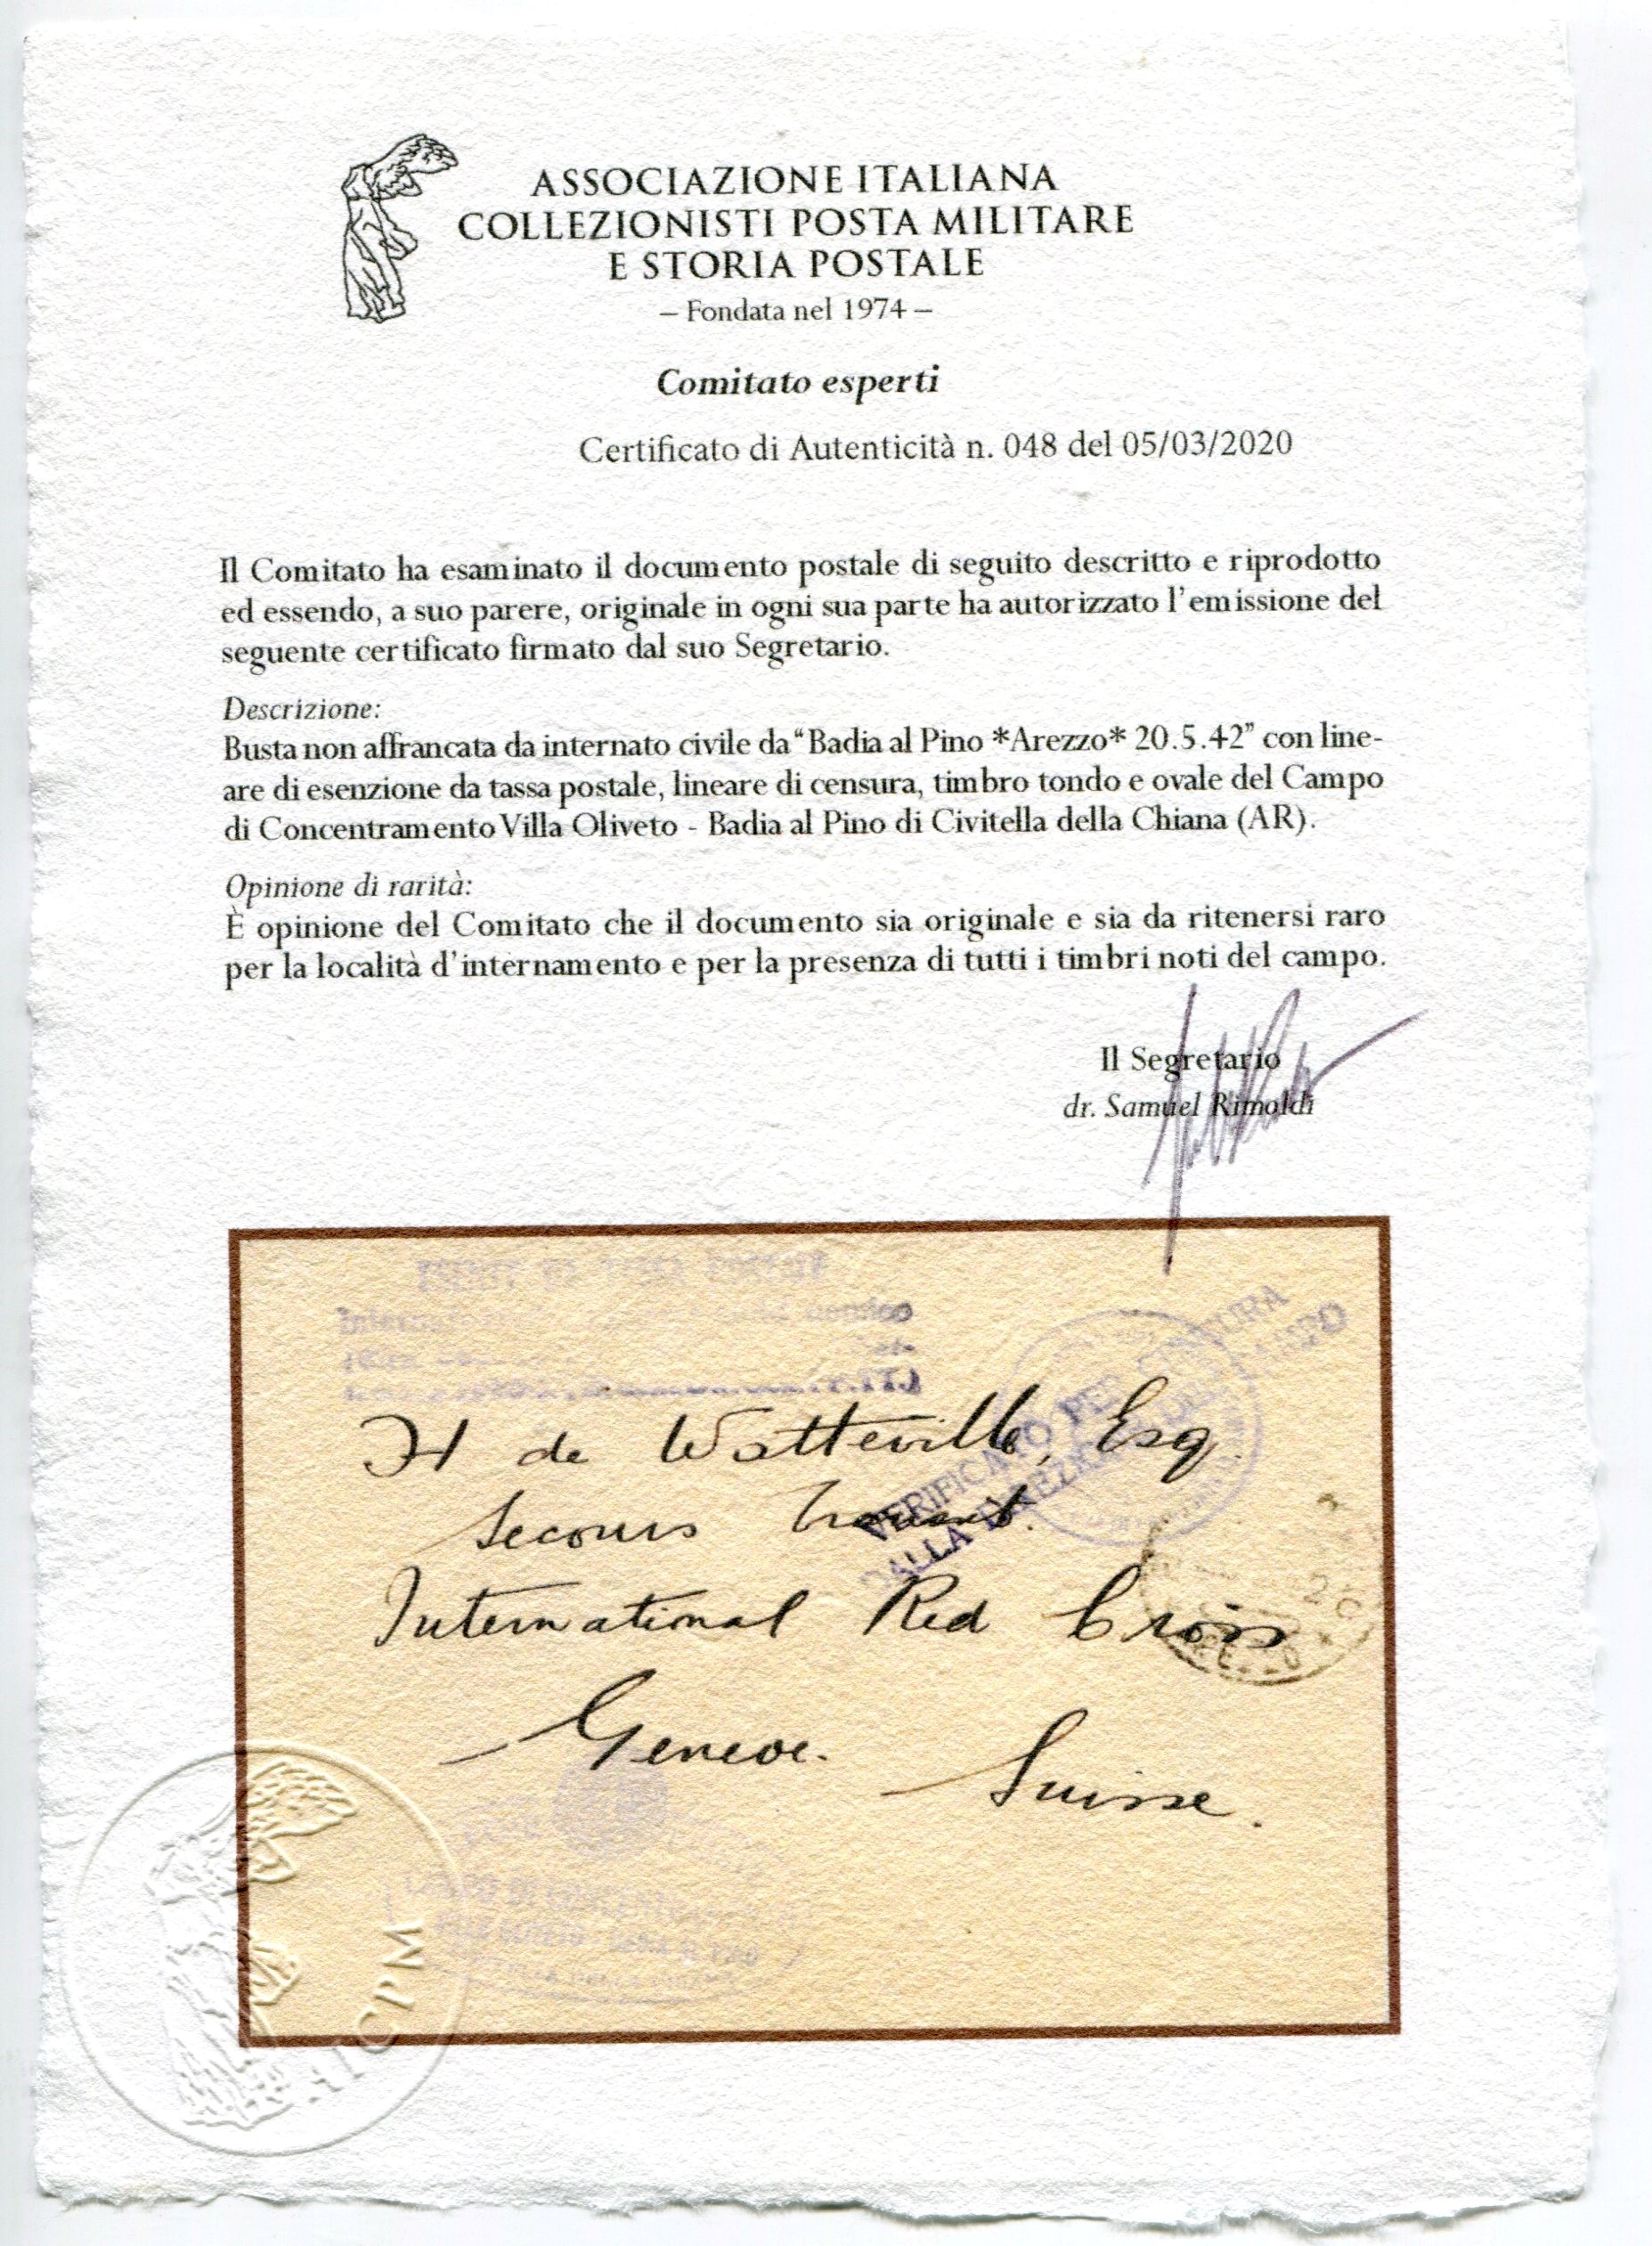 ASSOCIAZIONE ITALIANA
COLLEZIONISTI POSTA MILITARE
E STORIA POSTALE
– Fondata nel 1974 –
Comitato esperti
Certificato di Autenticità n. 048 del 05/03/2020
Il Comitato ha esaminato il documento postale di seguito descritto e riprodotto
ed essendo, a suo parere, originale in ogni sua parte ha autorizzato l'emissione del
seguente certificato firmato dal suo Segretario.
Descrizione:
Busta non affrancata da internato civile da “Badia al Pino *Arezzo* 20.5.42” con line-
are di esenzione da tassa postale, lineare di censura, timbro tondo e ovale del Campo
di Concentramento Villa Oliveto - Badia al Pino di Civitella della Chiana (AR).
Opinione di rarità:
È opinione del Comitato che il documento sia originale e sia da ritenersi raro
per la località d'internamento e per la presenza di tutti i timbri noti del campo.
Il Segretario
dr. Samuel Rimoldi
VERIFICATO PER CENSURA
DALLA DIREZIONE DEL CAMPO
H de Watteville, Esq.
Secours
International Red Cross
Geneve.
Suisse.
AICPM